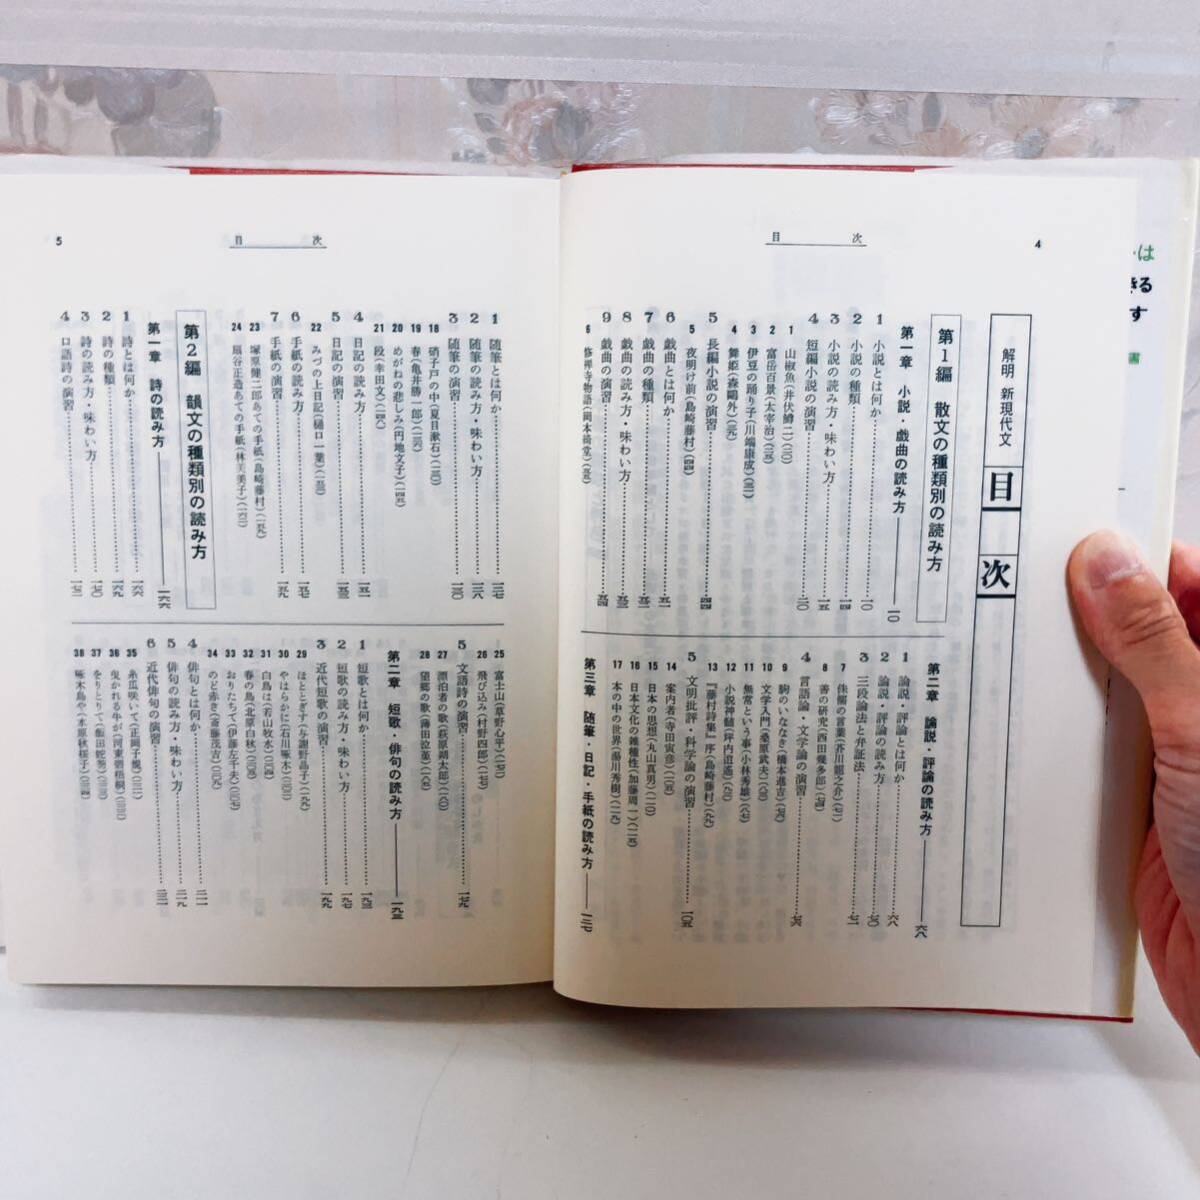 4
目次
解明 新現代文
目次
第1編 散文の種類別の読み方
第一章 小説・戯曲の読み方 一〇
1 小説とは何か 一〇
2 小説の種類 一四
3 小説の読み方・味わい方 一五
4 短編小説の演習 二〇
1 山椒魚(井伏鱒二)(二〇)
2 富岳百景(太宰治)(二五)
3 伊豆の踊り子(川端康成)(三二)
4 舞姫(森鷗外)(三九)
5 長編小説の演習 四四
5 夜明け前(島崎藤村)(四四)
6 戯曲とは何か 五一
7 戯曲の種類 五二
8 戯曲の読み方・味わい方 五三
9 戯曲の演習 五四
6 修禅寺物語(岡本綺堂)(五四)
第二章 論説・評論の読み方 六八
1 論説・評論とは何か 六八
2 論説・評論の読み方 七〇
3 三段論法と弁証法 七一
7 侏儒の言葉(芥川龍之介)(七二)
8 善の研究(西田幾多郎)(七四)
4 言語論・文学論の演習 七六
9 駒のいななき(橋本進吉)(七六)
10 文学入門(桑原武夫)(八三)
11 無常という事(小林秀雄)(八七)
12 小説神髄(坪内逍遙)
13 『藤村詩集』序(島崎藤村)(九九)
5 文明批評・科学論の演習 一〇五
14 案内者(寺田寅彦)(一〇五)
15 日本の思想(丸山真男)(一一〇)
16 日本文化の雑種性(加藤周一)(一一五)
17 本の中の世界(湯川秀樹)(一一九)
第三章 随筆・日記・手紙の読み方 一二七
5
目次
1 随筆とは何か 一二七
2 随筆の読み方・味わい方 一二八
3 随筆の演習 一三〇
18 硝子戸の中(夏目漱石)(一三〇)
19 春(亀井勝一郎)(一三六)
20 めがねの悲しみ(円地文子)(一四五)
21 段(幸田文)(一四八)
4 日記の読み方 一五二
5 日記の演習 一五三
22 みづの上日記(樋口一葉)(一五三)
6 手紙の読み方 一五七
7 手紙の演習 一五九
23 塚原健二郎あての手紙(島崎藤村)(一五九)
24 扇谷正造あての手紙(林芙美子)(一六二)
第2編 韻文の種類別の読み方
第一章 詩の読み方 一六六
1 詩とは何か 一六六
2 詩の種類 一六九
3 詩の読み方・味わい方 一七〇
4 口語詩の演習 一七二
25 富士山(草野心平)(一七二)
26 飛び込み(村野四郎)(一七七)
5 文語詩の演習 一七九
27 漂泊者の歌(萩原朔太郎)
28 望郷の歌(薄田泣菫)(一八五)
第二章 短歌・俳句の読み方 一九三
1 短歌とは何か 一九三
2 短歌の読み方・味わい方 一九七
3 近代短歌の演習 一九九
29 ほととぎす(与謝野晶子)(一九九)
30 やはらかに(石川啄木)
31 白鳥は(若山牧水)
32 春の鳥(北原白秋)
33 おりたちて(伊藤左千夫)(二〇七)
34 のど赤き(斎藤茂吉)(二〇九)
4 俳句とは何か 二一一
5 俳句の読み方・味わい方 二一九
6 近代俳句の演習 二二一
35 糸瓜咲いて(正岡子規)
36 曳かれる牛が(河東碧梧桐)
37 をりとりて(飯田蛇笏)
38 啄木鳥や(水原秋桜子)
は
きる
す
書